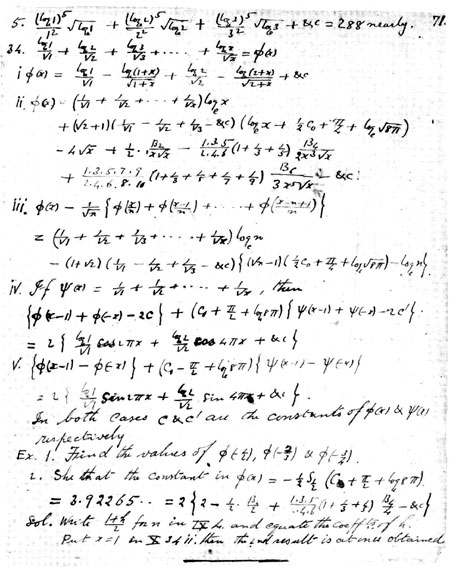 78.
5. (log 1)^5/1^2 √log 1 + (log 2)^5/2^2 √log 2 + (log 3)^5/3^2 √log 3 + &c = 288 nearly.
34. log 1/√1 + log 2/√2 + log 3/√3 + ..... + log x/√x = φ(x)
i φ(x) = log 1/√1 - log(1+x)/√(1+x) + log 2/√2 - log(2+x)/√(2+x) + &c
ii. φ(x) = (1/√1 + 1/√2 + ... + 1/√x) log_e x
+ (√2+1)(1/√1 - 1/√2 + 1/√3 - &c)(log_e x + ½ C₀ + π/4 + log_e √8π)
- 4√x + ½ · B₂/(x√x) - 1.3.5/2.4.6 (1 + 1/3 + 1/5) B₄/(2x³√x)
+ 1.3.5.7.9/2.4.6.8.10 (1 + 1/3 + 1/5 + 1/7 + 1/9) B₆/(3x⁵√x) - &c.
iii. φ(x) - 1/√n {φ(x/n) + φ((x-1)/n) + ..... + φ((x-n+1)/n)}
= (1/√1 + 1/√2 + 1/√3 + ..... + 1/√x) log n
- (1+√2)(1/√1 - 1/√2 + 1/√3 - &c){(√n-1)(½ C₀ + π/4 + log √8π) - log n}
iv. If ψ(x) = 1/√1 + 1/√2 + ..... + 1/√x, then
{φ(x-1) + φ(-x) - 2C} + (C₀ + π/2 + log 8π){ψ(x-1) + ψ(-x) - 2C'}
= 2{log 1/√1 cos 2πx + log 2/√2 cos 4πx + &c}
v. {φ(x-1) - φ(-x)} + (C₀ - π/2 + log 8π){ψ(x-1) - ψ(-x)}
= 2{log 1/√1 sin 2πx + log 2/√2 sin 4πx + &c}.
In both cases C & C' are the constants of φ(x) & ψ(x)
respectively
Ex. 1. Find the values of φ(-½), φ(-⅔) &
2. Shew that the constant in φ(x) = - ½ S½ (C₀ + π/2 + log 8π)
= 3.92265.. = 2{2 - ½ · B₂/2 + 1.3.5/2.4.6 (1 + 1/3 + 1/5) B₄/4 - &c}
Sol. Write for n in IX 4. and equate the coeffts of h.
Put x=1 in X 34 ii. then the 2nd result is at once obtained